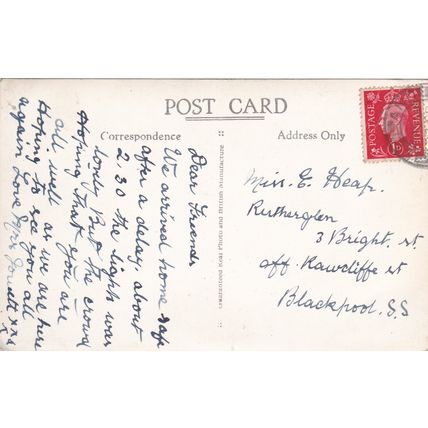 POST CARD
Correspondence
Address Only
Dear Friends
We arrived home safe
after a delay. about
2,30 the lights was
lovly But the crowd
Hoping that you are
all well as we are here
Hoping to see you all
again love Mrs xxx
Guaranteed Real Photo and British Manufacture
Miss. E. Heap.
Rutherglen
3 Bright. st.
off. Rawcliffe st
Blackpool. S.S
POSTAGE
REVENUE
1D